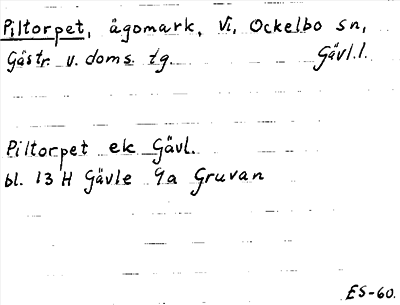 Piltorpet, ägomark, Vi, Ockelbo sn,
Gästr. v. doms. tg. Gävl.l.
Piltorpet ek Gävl.
bl. 13 H Gävle 9a Gruvan
ES-60.